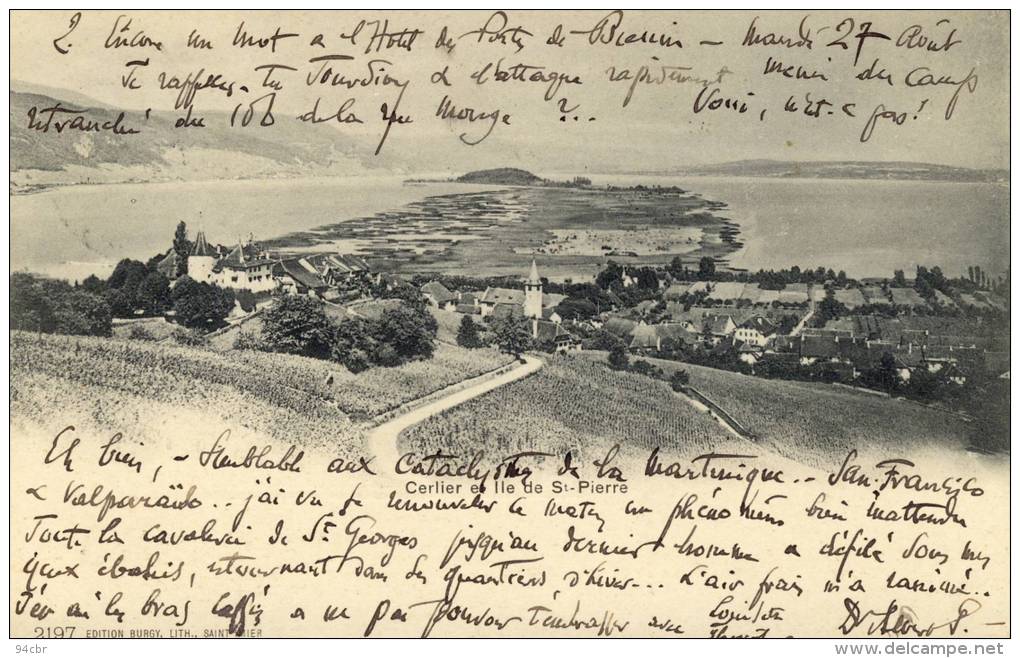 2. Encore un mot à l'Hôtel des Postes de – Mardi 27 Août
Te rappelles-tu Tourdion & l'attaque rapidement menée du camp
retranché du 106 de la rue Monge ?... Voui, n'est-ce pas!
Eh bien, – Semblable aux cataclysmes de la Martinique.. San-Francisco
& Valparaïso.. j'ai vu se renouveler ce matin un phénomène bien inattendu
Toute la cavalerie de St Georges jusqu'au dernier homme a défilé sous mes
yeux ébahis, retournant dans ses quartiers d'hiver... L'air frais m'a ranimé..
J'en ai les bras a ne pas pouvoir avec Dr Albert P. –
Cerlier et Ile de St-Pierre
2197 EDITION BURGY, LITH., SAINT
94cbr
www.delcampe.net